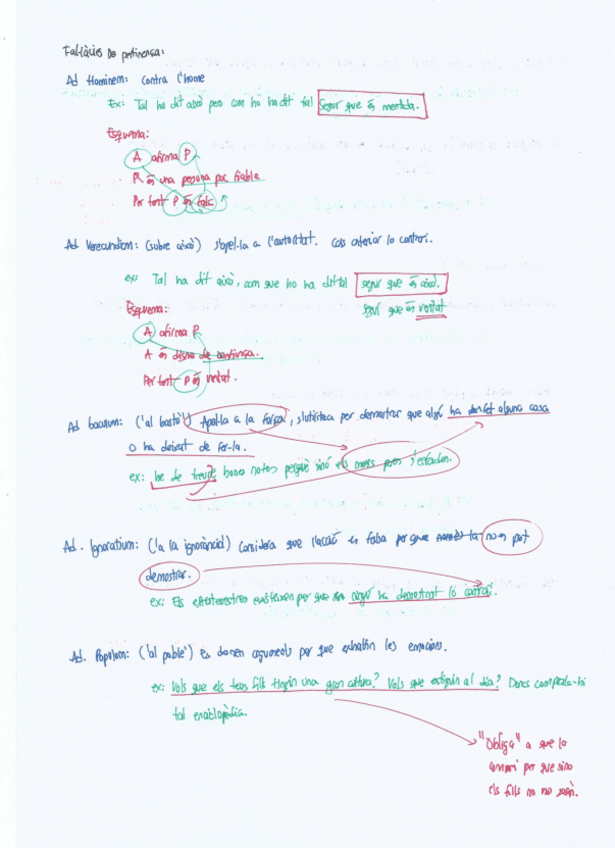 Fal·làcies de pertinença:
Ad Hominem: contra l'home
Ex: Tal ha dit això pero com ho ha dit tal segur que és mentida.
Esquema:
A afirma P
R és una persona poc fiable
Per tant P és fals
Ad Verecundiam: (sobre això) s'apel·la a l'autoritat. Cas anterior lo contrari.
ex: Tal ha dit això, com que ho ha dit tal segur que és això.
segur que és veritat
Esquema:
A afirma P
A és digne de confiança.
Per tant P és veritat.
Ad baculum: ('al bastó') Apel·la a la força, s'utilitza per demostrar que algú ha de fet alguna cosa
o ha deixat de fer-la.
ex: he de treure bones notes perquè sinó els meus pares s'enfadan.
Ad. Ignoratium: ('a la ignorància) Considera que l'acció es falsa per que la no es pot
demostrar.
ex: Els extraterrestres existeixen per que ningú ha demostrat lo contrari.
Ad. Populum: ('al poble') Es donen arguments per que exhaltin les emocions.
ex: Vols que els teus fills tinguin una gran cultura? Vols que estiguin al dia? Dones compra'ls-hi
tal enciclopèdia.
"Obliga" a que lo
compri per que sino
els fills no no seràn.